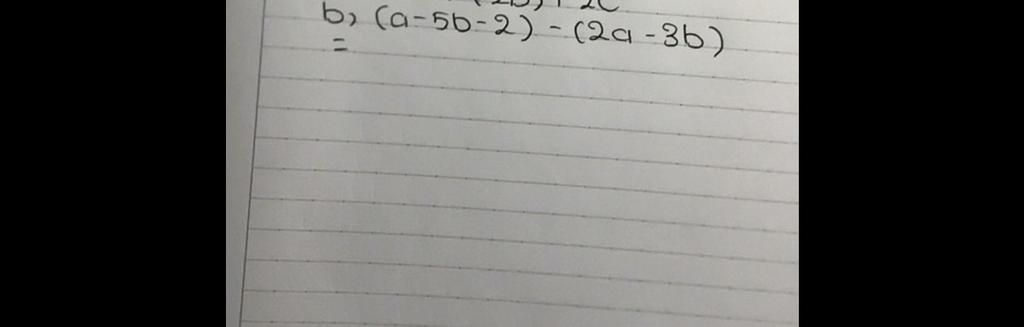 b, (a-5b-2) - (2a-3b)
=